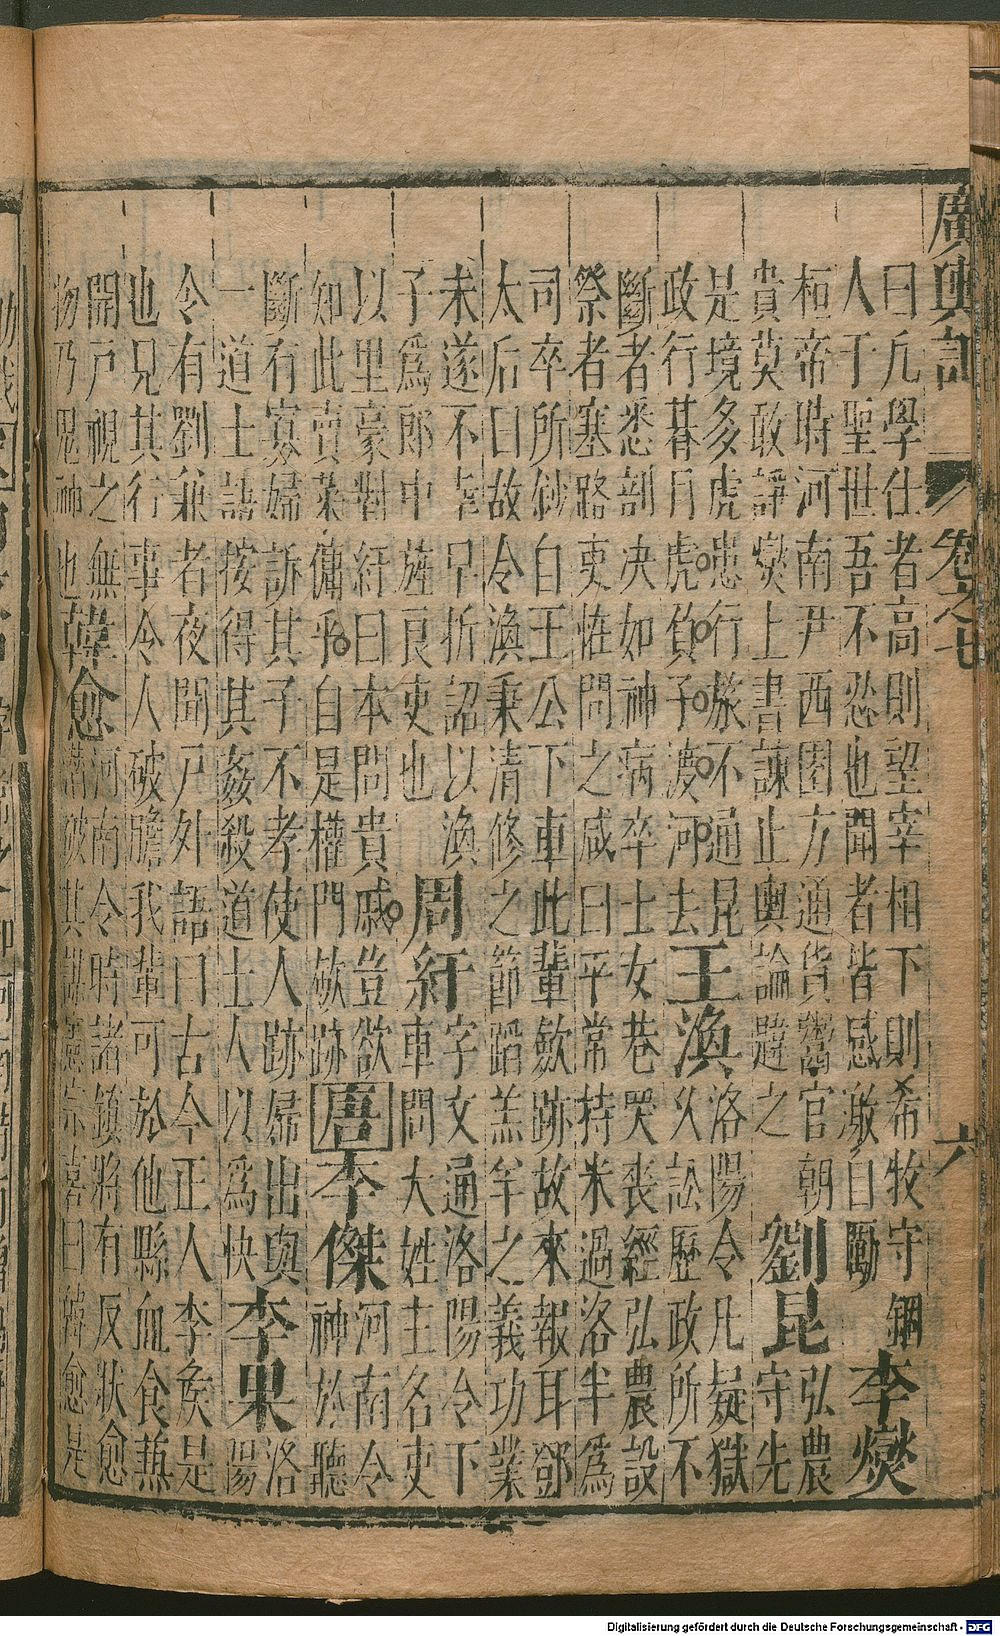 廣輿記 卷之七 六
曰凡學仕者高則望宰相下則希牧守錮
人于聖世吾不忍也聞者皆感激自勵
李燮
桓帝時河南尹西園方通貨鬻官朝
貴莫敢諍燮上書諫止輿論韙之
劉昆
弘農
守先
是境多虎患行旅不通昆
政行朞月虎負子渡河去
王渙
洛陽令凡疑獄
久訟歷政所不
斷者悉剖決如神病卒士女巷哭喪經弘農設
祭者塞路吏怪問之咸曰平常持米過洛半為
司卒所鈔自王公下車此輩歛跡故來報耳鄧
太后曰故令渙秉清修之節蹈羔羊之義功業
未遂不幸早折詔以渙
子為郎中旌良吏也
周紆
字文通洛陽令下
車問大姓主名吏
以里豪對紆曰本問貴戚豈欲
知此賣菜傭乎自是權門歛跡
唐
李傑
河南令
神於聽
斷有寡婦訴其子不孝使人跡歸出與
一道士語按得其姦殺道士人以為快
李果
洛
陽
令有劉兼者夜聞戶外語曰古今正人李矦是
也兄其行事令人破膽我輩可於他縣血食蕪
開戶視之無
物乃鬼神也
韓愈
河南令時諸鎮將有反狀愈
潛破其謀憲宗喜曰韓愈是
Digitalisierung gefördert durch die Deutsche Forschungsgemeinschaft - DFG